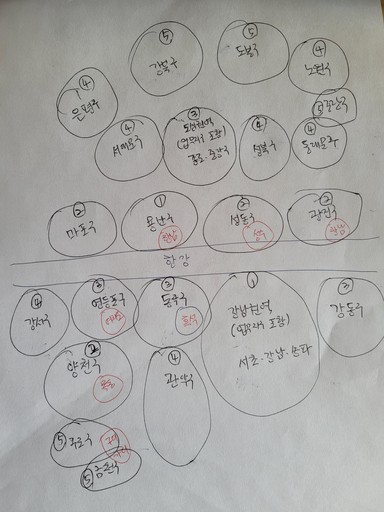 ⑤
강북구
⑤
도봉구
④
노원구
④
은평구
③ 중랑구
④
서대문구
③
도심권역
(업무지구 포함)
종로·중구
④
성북구
④
동대문구
②
마포구
①
용산구
한남
②
성동구
성수
②
광진구
한강
④
강서구
②
영등포구
여의도
②
동작구
흑석
①
강남권역
(업무지구 포함)
서초·강남·송파
③
강동구
②
양천구
목동
④
관악구
⑤ 구로구
⑤ 금천구